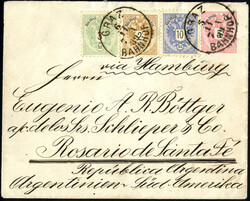 GRAZ
BAHNHOF
GRAZ
BAHNHOF
10
via Hamburg
Herrn
Eugenio A. R. Böttger
a/c de los Srs Schlieper & Co.
Rosario de Santa Fé
Republica Argentina
Argentinien Süd-Amerika